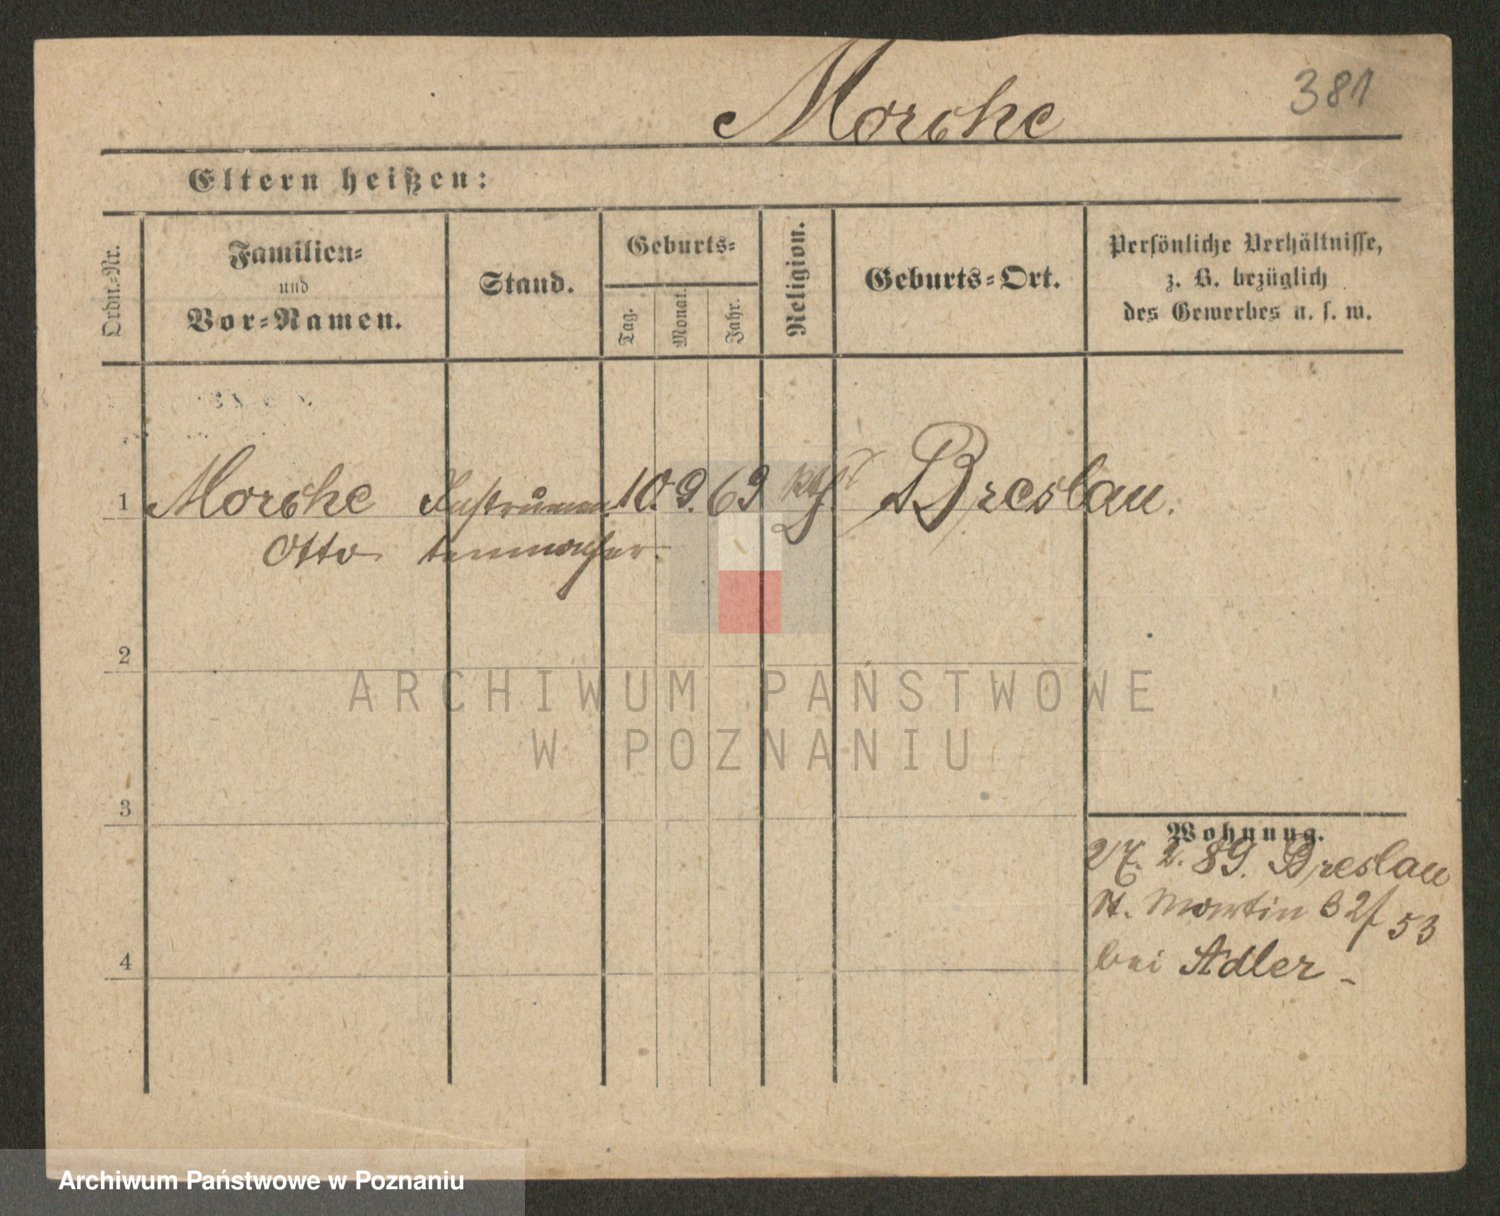 Morche
381
Eltern heißen:
Ordn.-Nr.
Familien-
und
Vor-Namen.
Stand.
Geburts-
Tag.
Monat.
Jahr.
Religion.
Geburts-Ort.
Persönliche Verhältnisse,
z. B. bezüglich
des Gewerbes u. s. w.
1 Morche Instrumen 10. 9. 69 Breslau.
Otto tenmacher.
2
3
4
Wohnung.
27. 2. 89. Breslau
St. Martin 53
bei Adler
ARCHIWUM PAŃSTWOWE
W POZNANIU
Archiwum Państwowe w Poznaniu